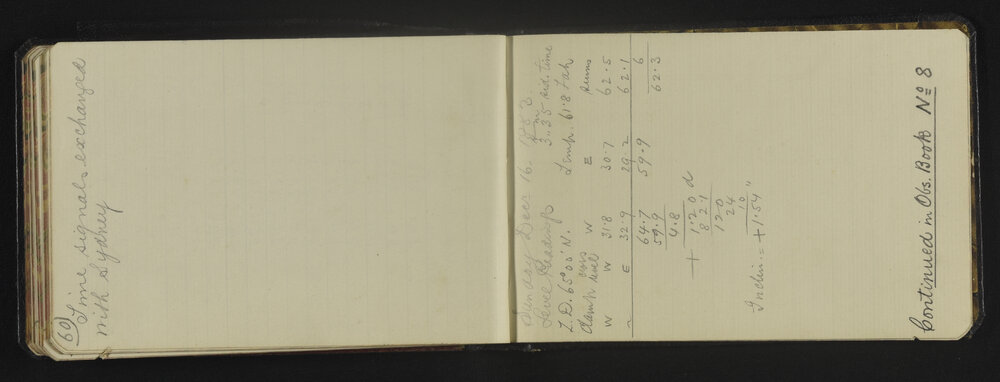 60
Time signals exchanged
with Sydney
Sunday Decr 16. 1883
Level Readings 3h..35m sid. time
Z.D. 65°00' N. Temp. 61.8 Fah
Clamp level W E Sums
W W 31.8 30.7 62.5
E 32.9 29.2 62.1
64.7 59.9 6
59.9 62.3
4.8
+ 1.20 d
120
24
10
Inclin. = +1.54"
Continued in Obs. Book No 8